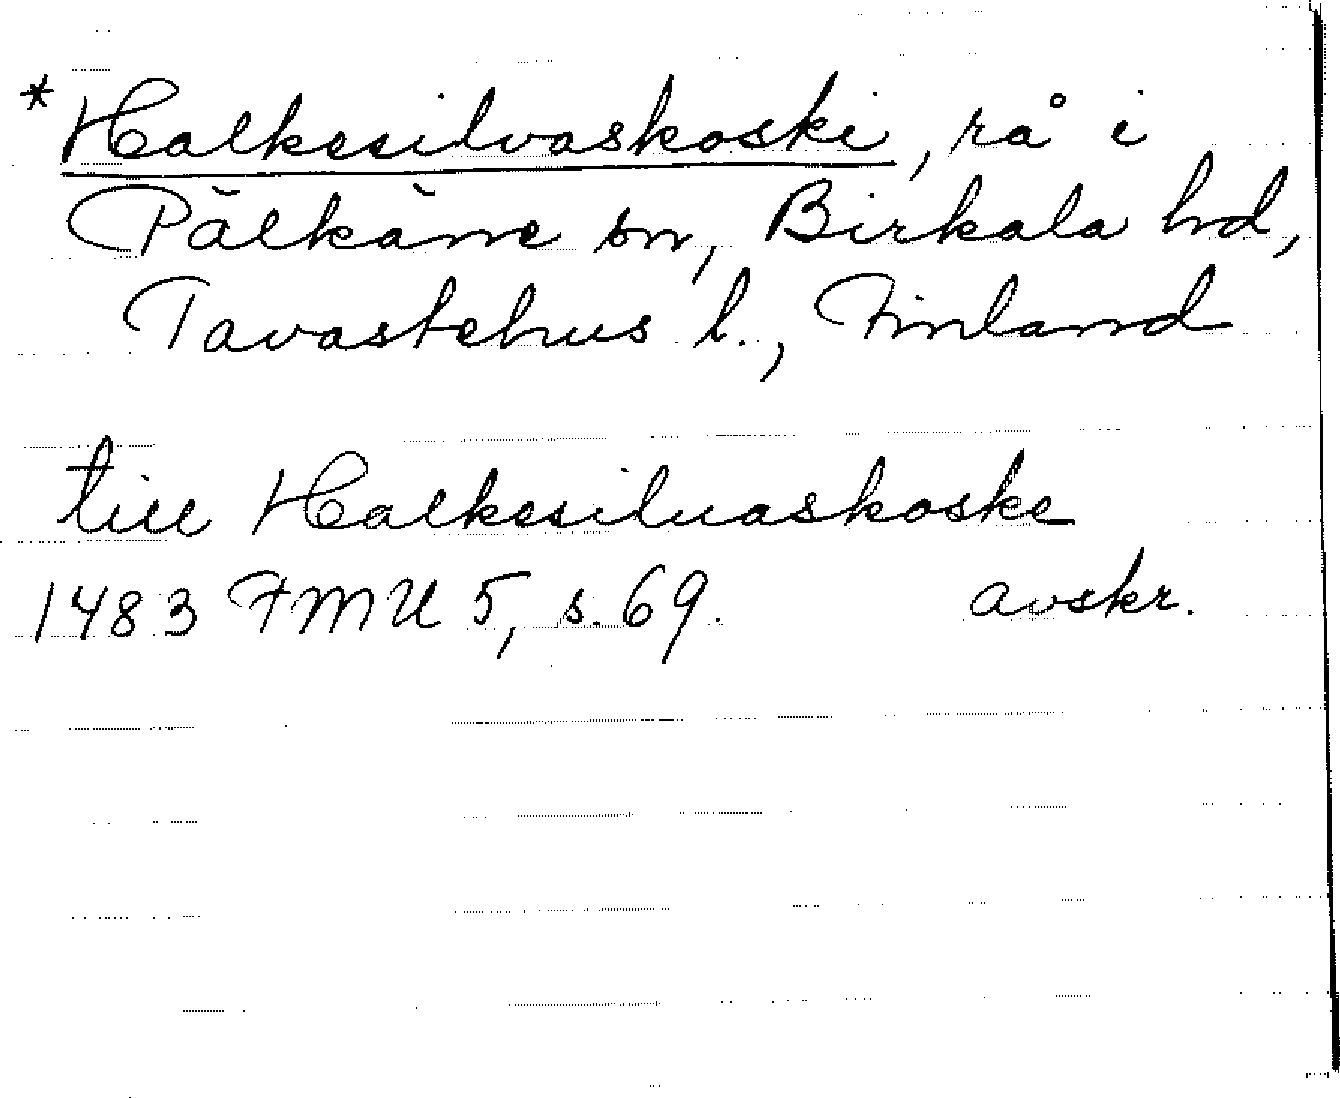 * Halkesilvaskoski, rå i
Pälkäne sn, Birkala hd,
Tavastehus l., Finland
till Halkesiluaskoske
1483 FMU 5, s. 69. avskr.